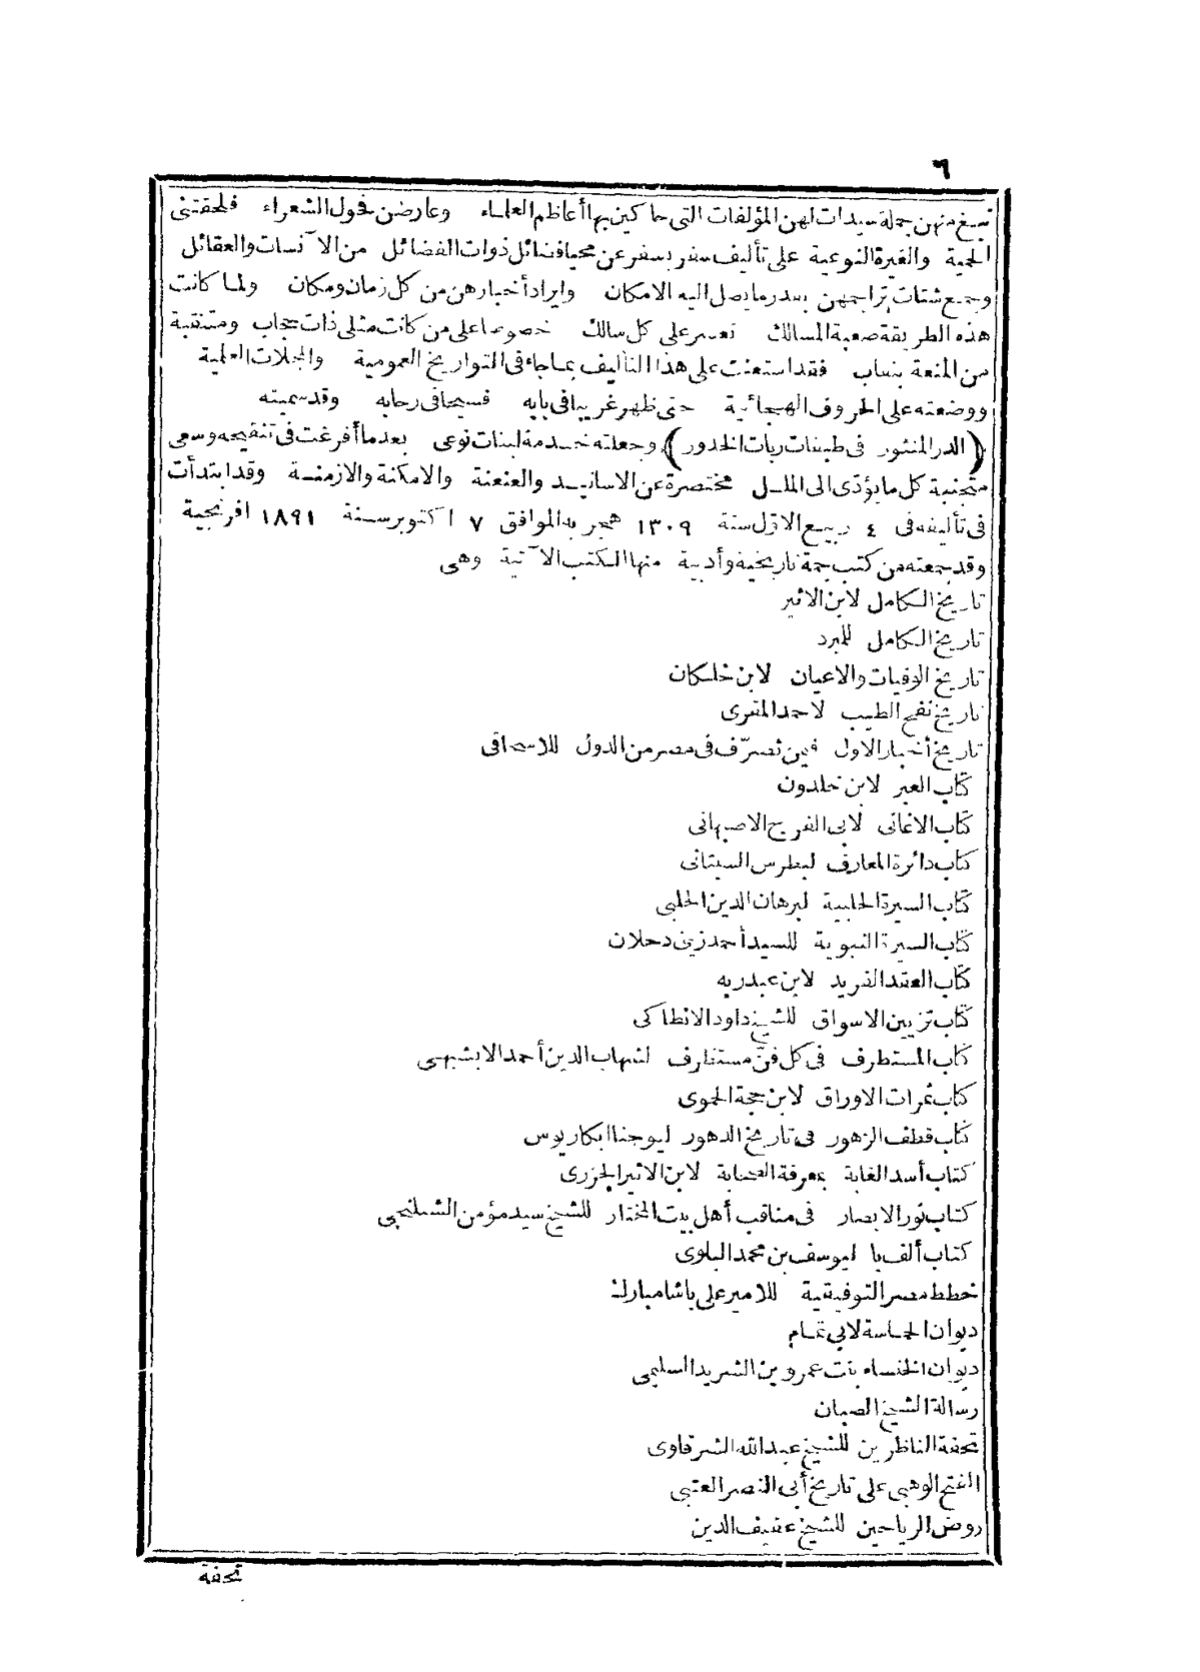 ٦
نبغ منهن جملة سيدات لهن المؤلفات التى حاكين بها أعاظم العلماء وعارضن فحول الشعراء فلحقتنى
الحمية والغيرة النوعية على تأليف سفر يسفر عن محيا فضائل ذوات الفضائل من الآنسات والعقائل
وجمع شتات تراجمهن بقدر ما يصل اليه الامكان وايراد أخبارهن من كل زمان ومكان ولما كانت
هذه الطريقة صعبة المسالك تعسر على كل سالك خصوصا على من كانت مثلى ذات حجاب ومتنقبة
من المنعة بنقاب فقد استعنت على هذا التأليف بما جاء فى التواريخ العمومية والمجلات العلمية
ووضعته على الحروف الهجائية حتى ظهر غريبا فى بابه فسيحا فى رحابه وقد سميته
(الدر المنثور فى طبقات ربات الخدور) وجعلته خدمة لبنات نوعى بعد ما أفرغت فى تنقيحه وسعى
متجنبة كل ما يؤدّى الى الملل مختصرة عن الاسانيد والعنعنة والامكنة والازمنة وقد ابتدأت
فى تأليفه فى ٤ ربيع الاوّل سنة ١٣٠٩ هجريه الموافق ٧ اكتوبر سنة ١٨٩١ افرنجية
وقد جمعته من كتب جمة تاريخية وأدبية منها الكتب الآتية وهى
تاريخ الكامل لابن الاثير
تاريخ الكامل للمبرد
تاريخ الوفيات والاعيان لابن خلكان
تاريخ نفح الطيب لاحمد المقرى
تاريخ أخبار الاول فيمن تصرّف فى مصر من الدول للاسحاقى
كتاب العبر لابن خلدون
كتاب الاغانى لابى الفرج الاصبهانى
كتاب دائرة المعارف لبطرس البستانى
كتاب السيرة الحلبية لبرهان الدين الحلبى
كتاب السيرة النبوية للسيد أحمد زينى دحلان
كتاب العقد الفريد لابن عبد ربه
كتاب تزيين الاسواق للشيخ داود الانطاكى
كتاب المستطرف فى كل فنّ مستظرف لشهاب الدين أحمد الابشيهى
كتاب ثمرات الاوراق لابن حجة الحموى
كتاب قطف الزهور فى تاريخ الدهور ليوحنا ابكاريوس
كتاب أسد الغابة بمعرفة الصحابة لابن الاثير الجزرى
كتاب نور الابصار فى مناقب أهل بيت المختار للشيخ سيد مؤمن الشبلنجى
كتاب ألف با ليوسف بن محمد البلوى
خطط مصر التوفيقية للامير على باشا مبارك
ديوان الحماسة لابى تمام
ديوان الخنساء بنت عمرو بن الشريد السليمى
رسالة الشيخ الصبان
تحفة الناظرين للشيخ عبد الله الشرقاوى
الفتح الوهبى على تاريخ أبى النصر العتبى
روض الرياحين للشيخ عفيف الدين
تحفة